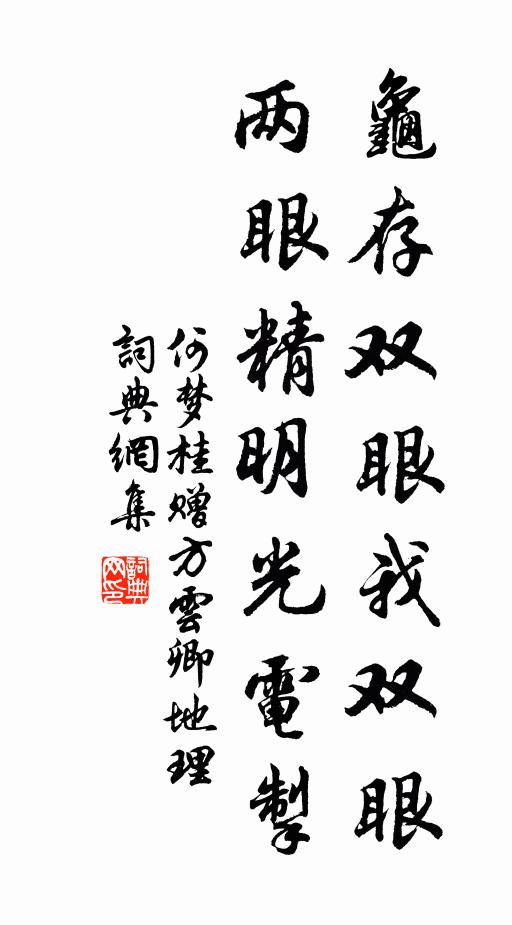 龜存双眼我双眼
两眼精明光電掣
何梦桂赠方雲卿地理
詞典網集
詞典网印